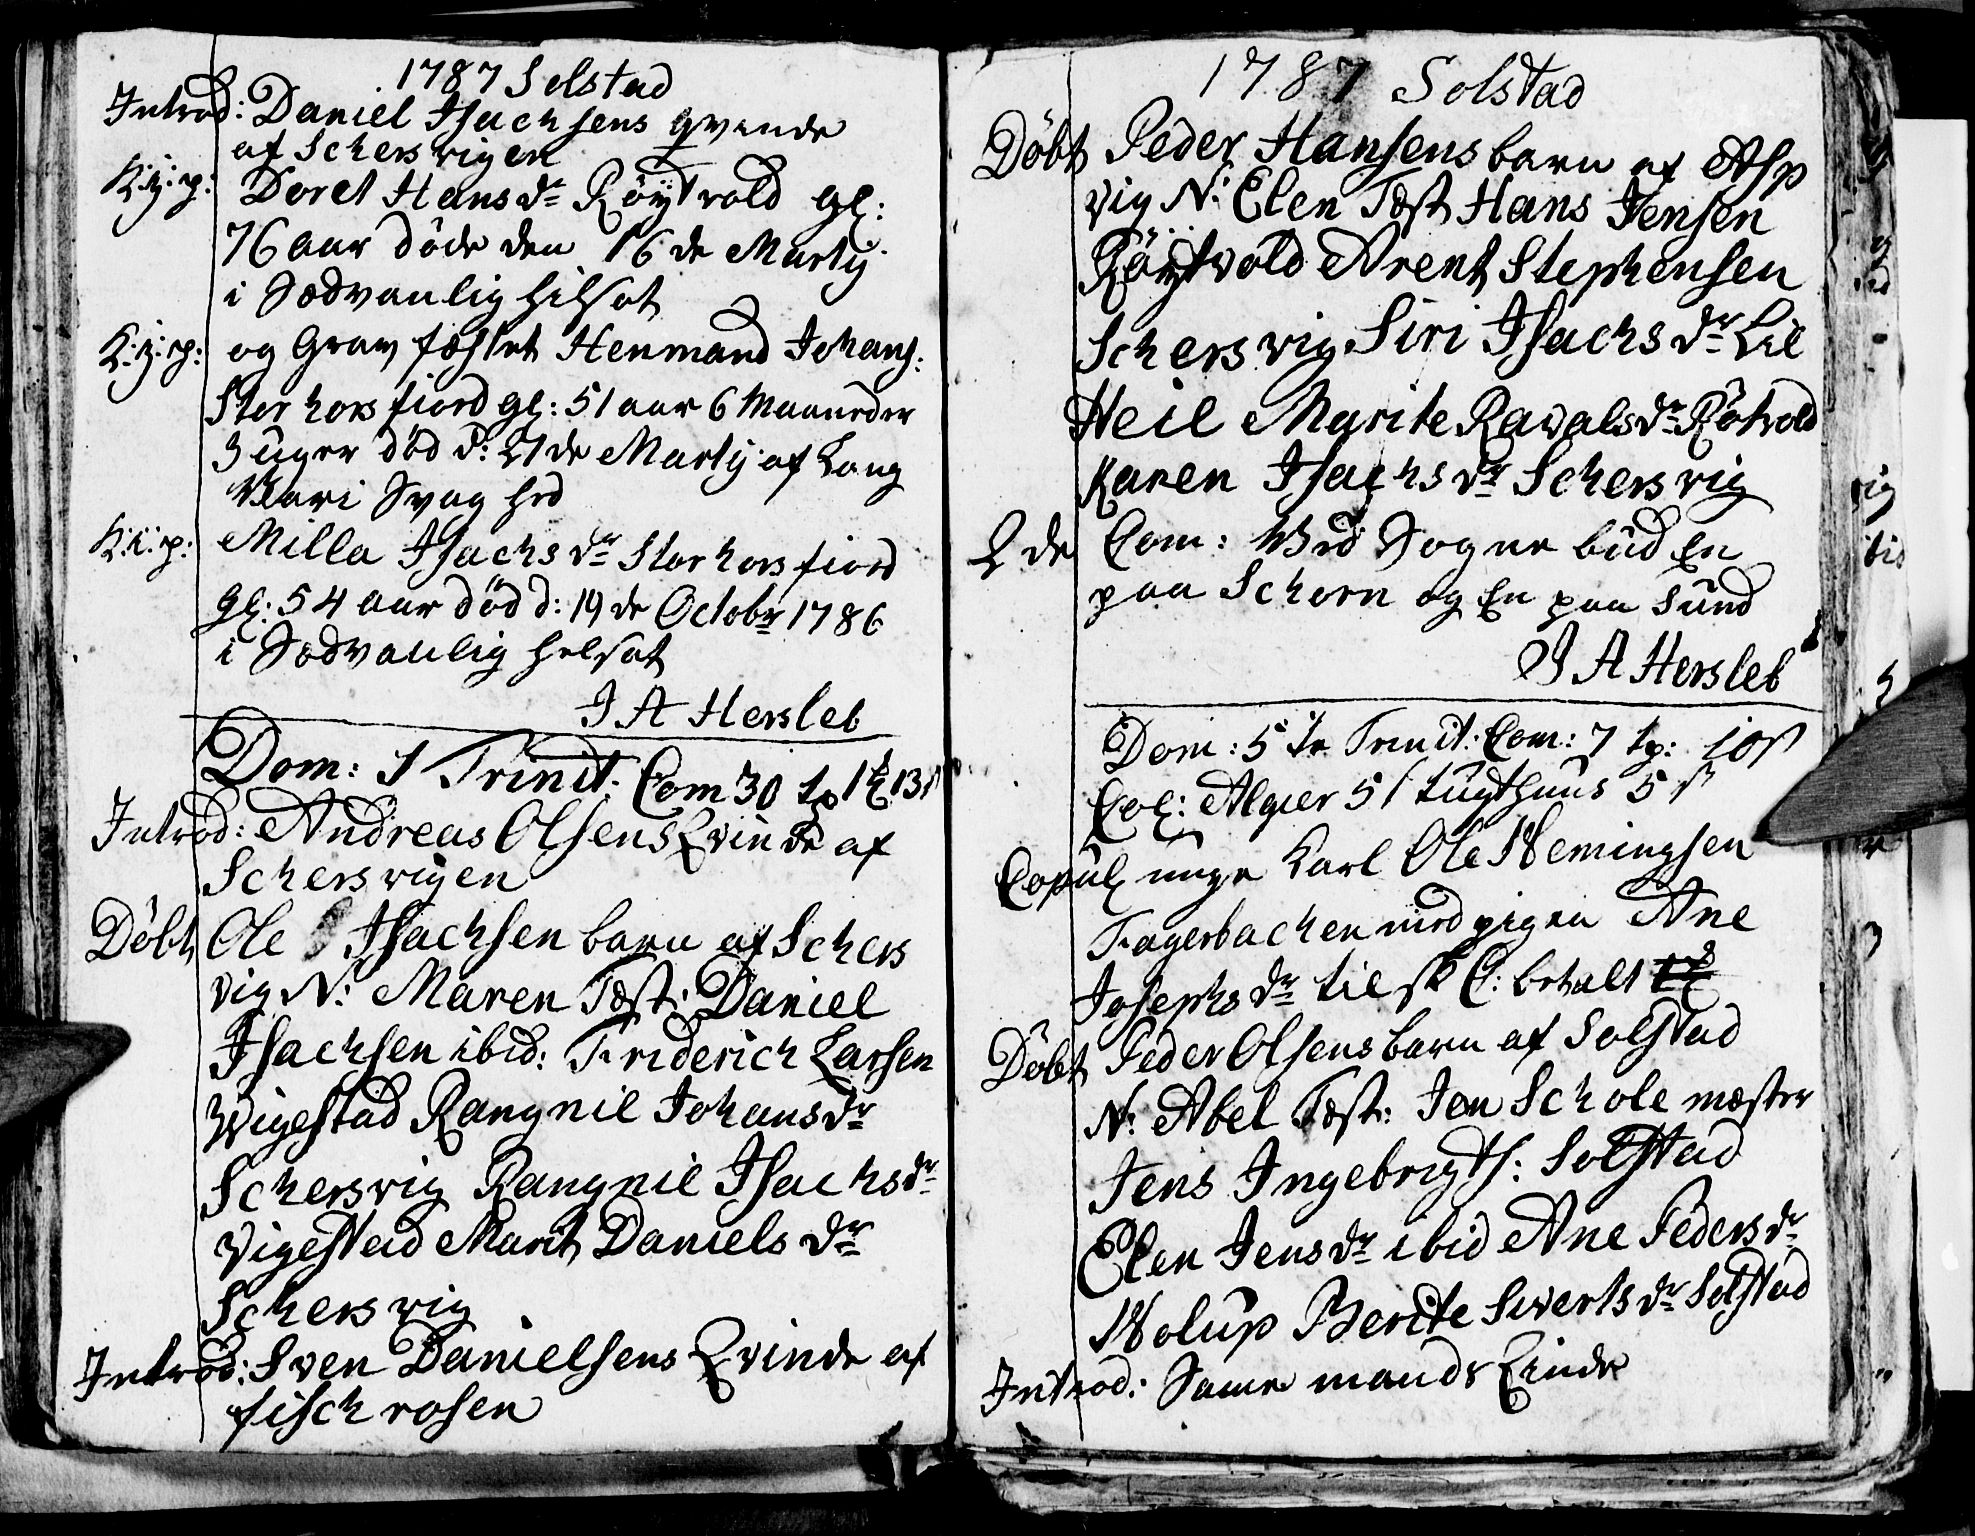 1787 Solstad
Introd: Daniel Isachsens qvinde
af Schersvigen
K: j: p: Doret Hansdr Röytvold gl:
76 aar döde den 16 de Marty
i Sædvanlig hilsot
K: j: p: og Grav fæstet Henmand Johans:
Storhorsfiord gl: 51 aar 6 Maaneder
3 uger död d: 21 de Marty af Lang
Vari Svaghed
K: j: p: Milla Isachsdr Storhorsfiord
gl: 54 aar död d: 19 de Octobr 1786
i Sædvanlig helsot
J A Hersleb
Dom: 1 Trinit: Com 30
Introd: Andreas Olsens Qvinde af
Schersvigen
Döbt Ole Isachsen barn af Schers
vig N: Maren Test: Daniel
Isachsen ibid: Friderich Larsen
Wigestad Rangnil Johansdr
Schersvig Rangnil Isachsdr
Vigestad Marit Danielsdr
Schersvig
Introd: Sven Danielsens Qvinde af
fischrosen
1787 Solstad
Döbt Peder Hansens barn af Asp
vig N: Elen Test Hans Jensen
Röytvold Arent Stephensen
Schersvig Siri Isachsdr Lil
Heil Marite Ravalsdr Rötvold
Karen Isachsdr Schersvig
2 de Com: Ved Sognebud En
paa Schern og En paa Sund
J A Hersleb
Dom: 5 te Trinit: Com: 7 tp: 10 s
Col: Algier 5 s tugthuus 5 s
Copul unge Karl Ole Hemingsen
Fagerbachen med pigen Ane
Josephsdr til betalt
Döbt Peder Olsens barn af Solstad
N: Abel Test: Jen Scholemæster
Jens Ingebrigts: Solstad
Elen Jensdr ibid Ane Pedersdr
Holup Berite Siwertsdr Solstad
Introd: Samme mands Qinde